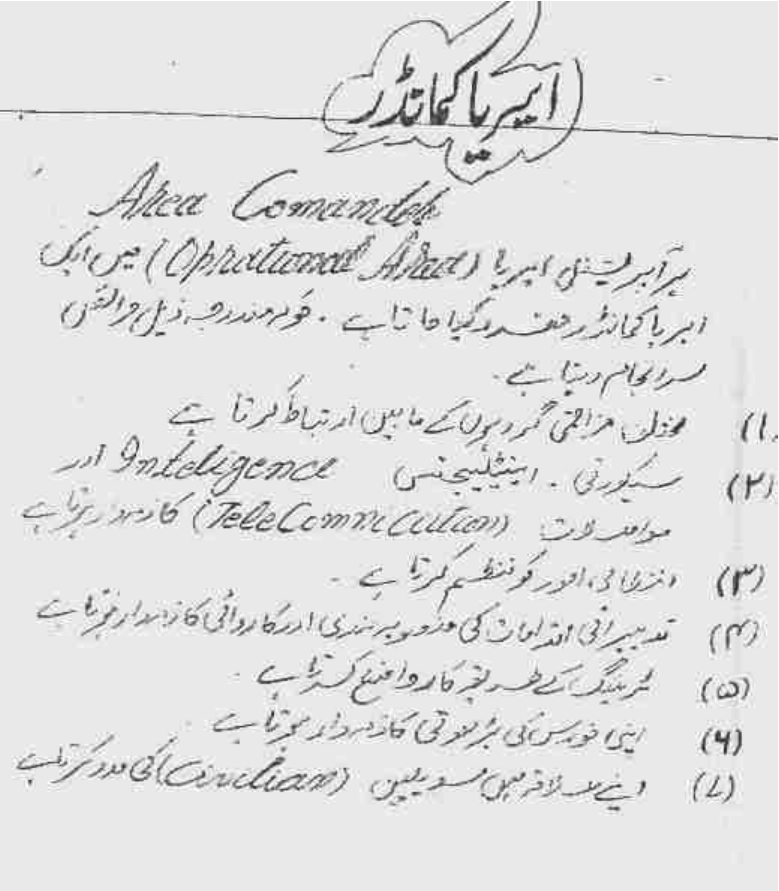 ایریا کمانڈر
Area Comander
ہر آپریشنل ایریا (Oprational Area) میں ایک
ایریا کمانڈر مقرر کیا جاتا ہے ۔ جو مندرجہ ذیل فرائض
سرانجام دیتا ہے ۔
(۱) مزاحمتی گروہوں کے مابین ارتباط کرتا ہے
(۲) سیکورٹی ۔ اینٹیلیجنس Inteligence اور
مواصلات (TeleComnication) کا ذمہ دار ہوتا ہے
(۳) انتظامی امور کو منظم کرتا ہے ۔
(۴) تدبیراتی اقدامات کی منصوبہ بندی اور کاروائی کا ذمہ دار ہوتا ہے
(۵) ٹریننگ کے طریقہ کار واضع کرتا ہے ۔
(۶) اپنی فورس کی بڑھوتی کا ذمہ دار ہوتا ہے
(۷) اپنے علاقہ میں سویلین (Civilian) کی مدد کرتا ہے